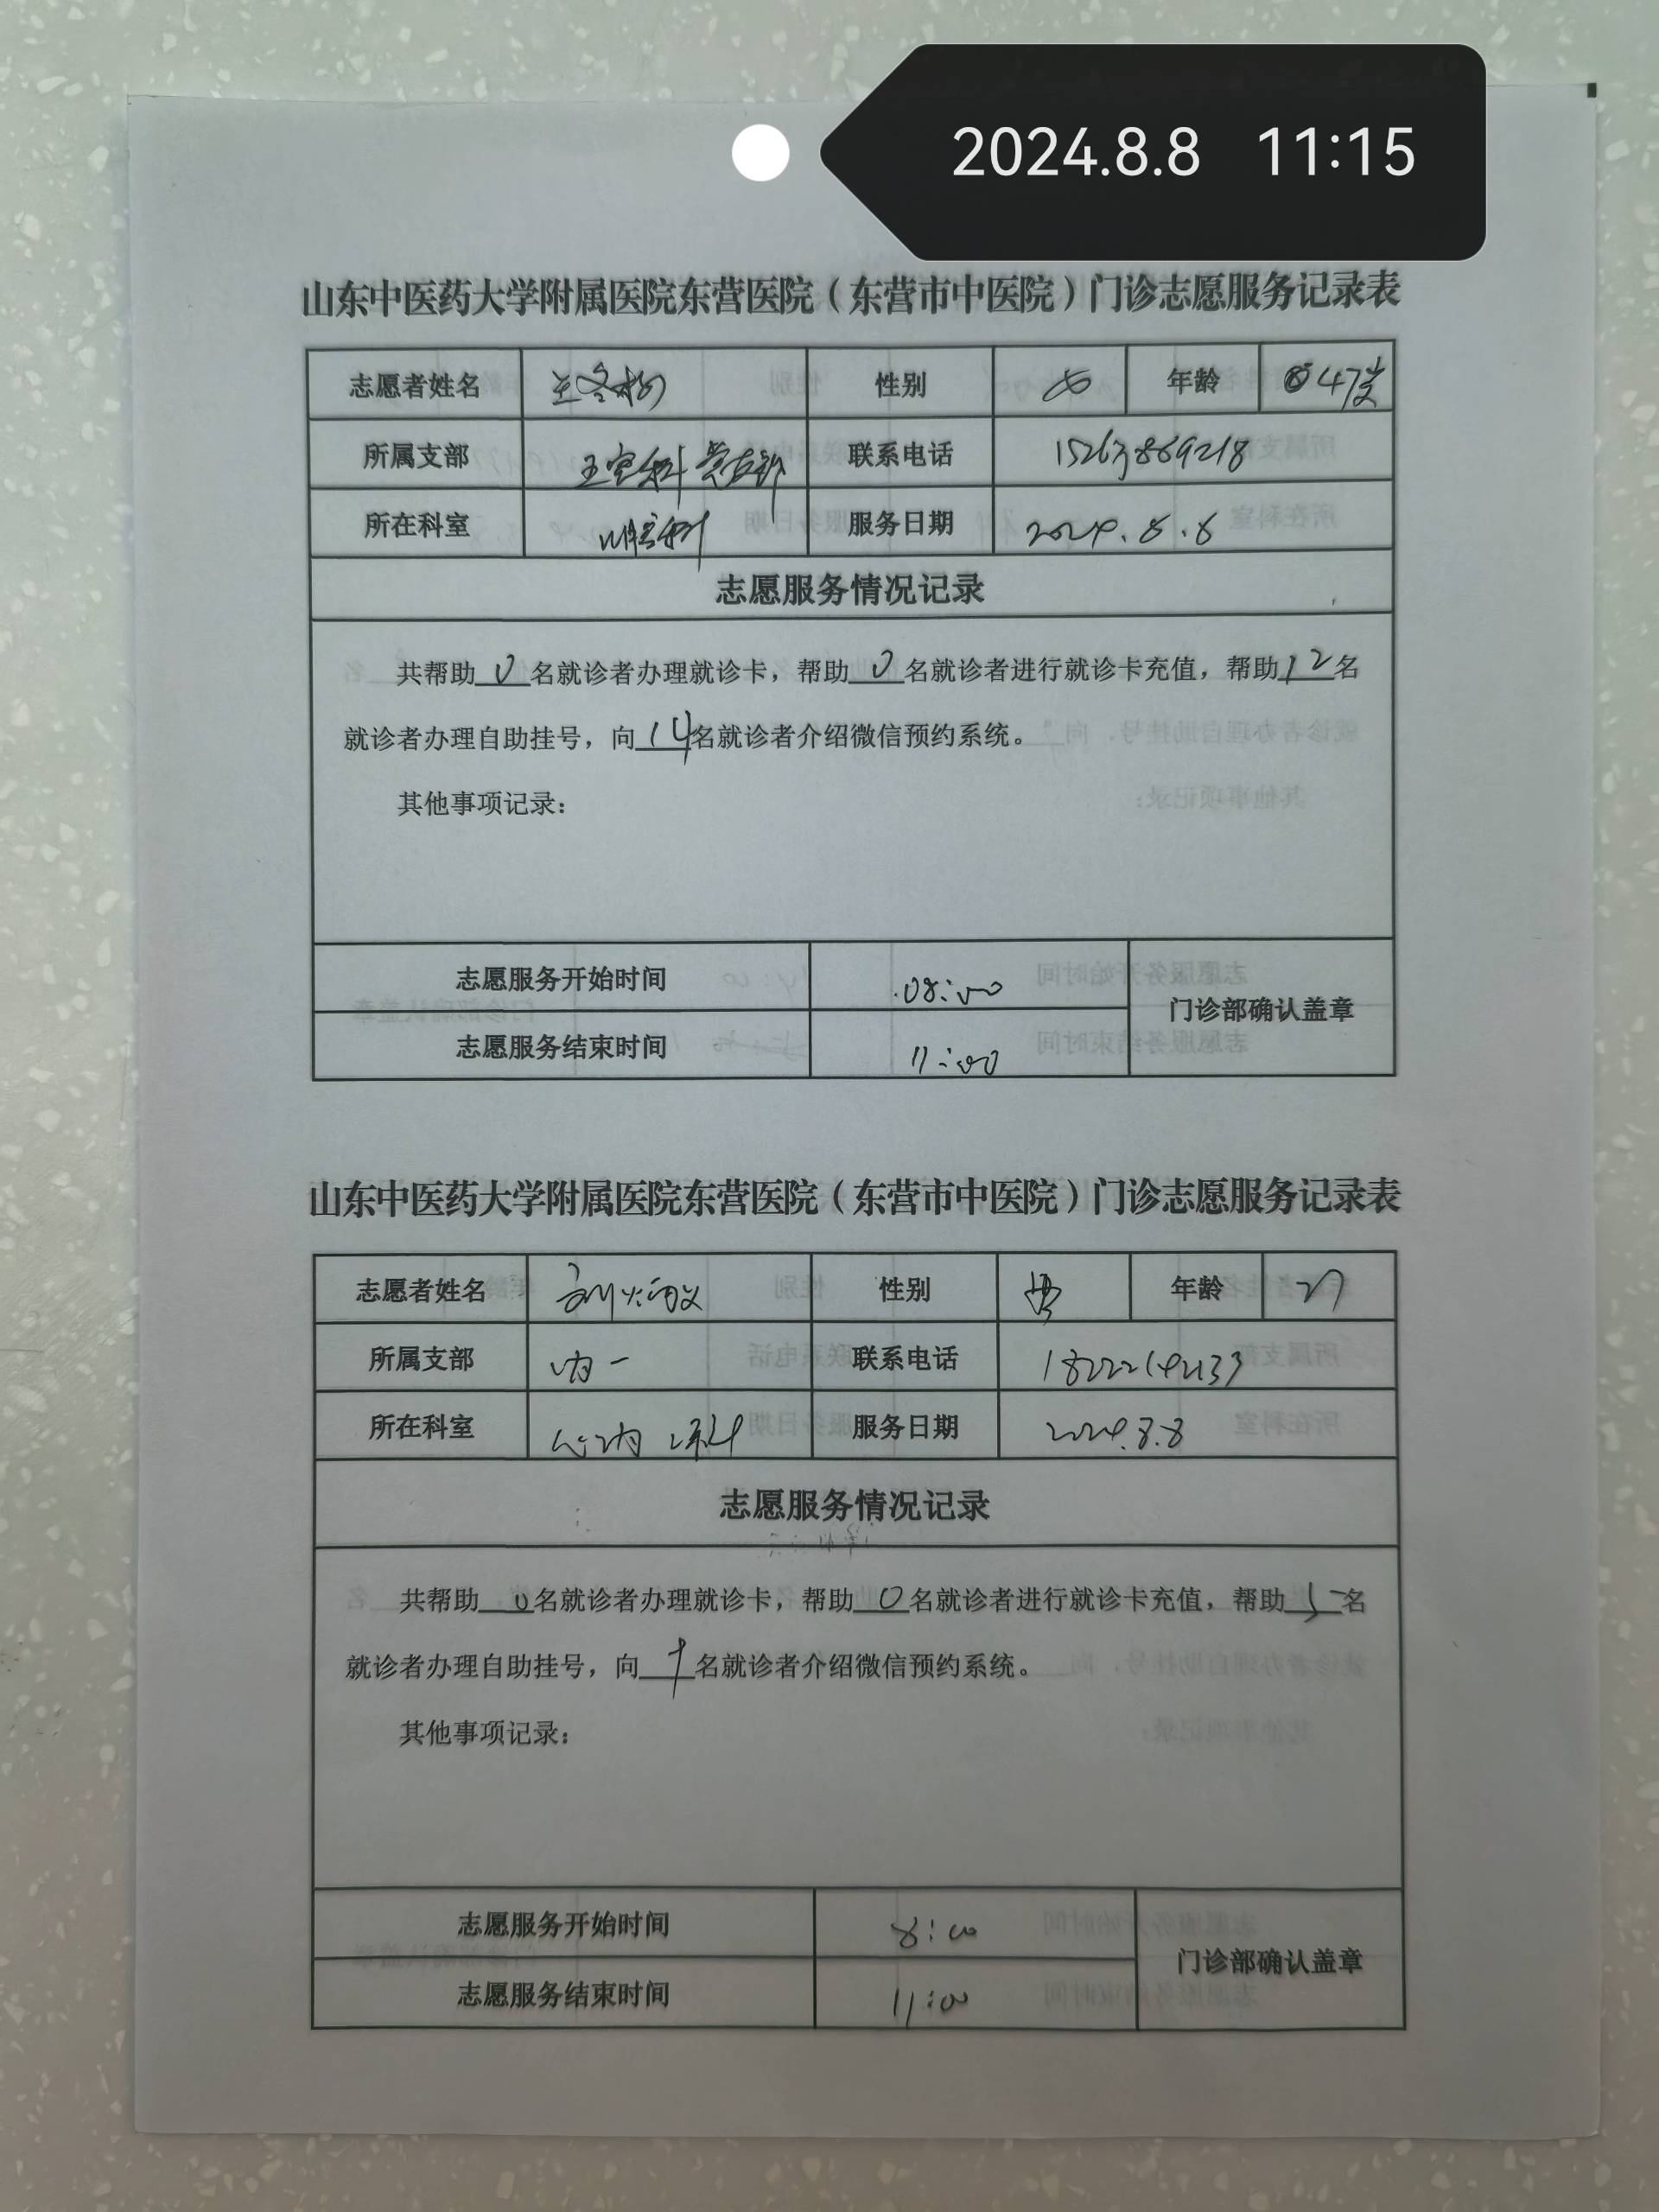 2024.8.8 11:15
山东中医药大学附属医院东营医院（东营市中医院）门诊志愿服务记录表
志愿者姓名 王冬梅 性别 女 年龄 47岁
所属支部 联系电话 15263869218
所在科室 服务日期 2024.8.8
志愿服务情况记录
共帮助0名就诊者办理就诊卡，帮助0名就诊者进行就诊卡充值，帮助12名
就诊者办理自助挂号，向14名就诊者介绍微信预约系统。
其他事项记录：
志愿服务开始时间 08:00
门诊部确认盖章
志愿服务结束时间 11:00
山东中医药大学附属医院东营医院（东营市中医院）门诊志愿服务记录表
志愿者姓名 性别 男 年龄 27
所属支部 内一 联系电话 18222192133
所在科室 心内二科 服务日期 2024.8.8
志愿服务情况记录
共帮助0名就诊者办理就诊卡，帮助0名就诊者进行就诊卡充值，帮助5名
就诊者办理自助挂号，向9名就诊者介绍微信预约系统。
其他事项记录：
志愿服务开始时间 8:00
门诊部确认盖章
志愿服务结束时间 11:00